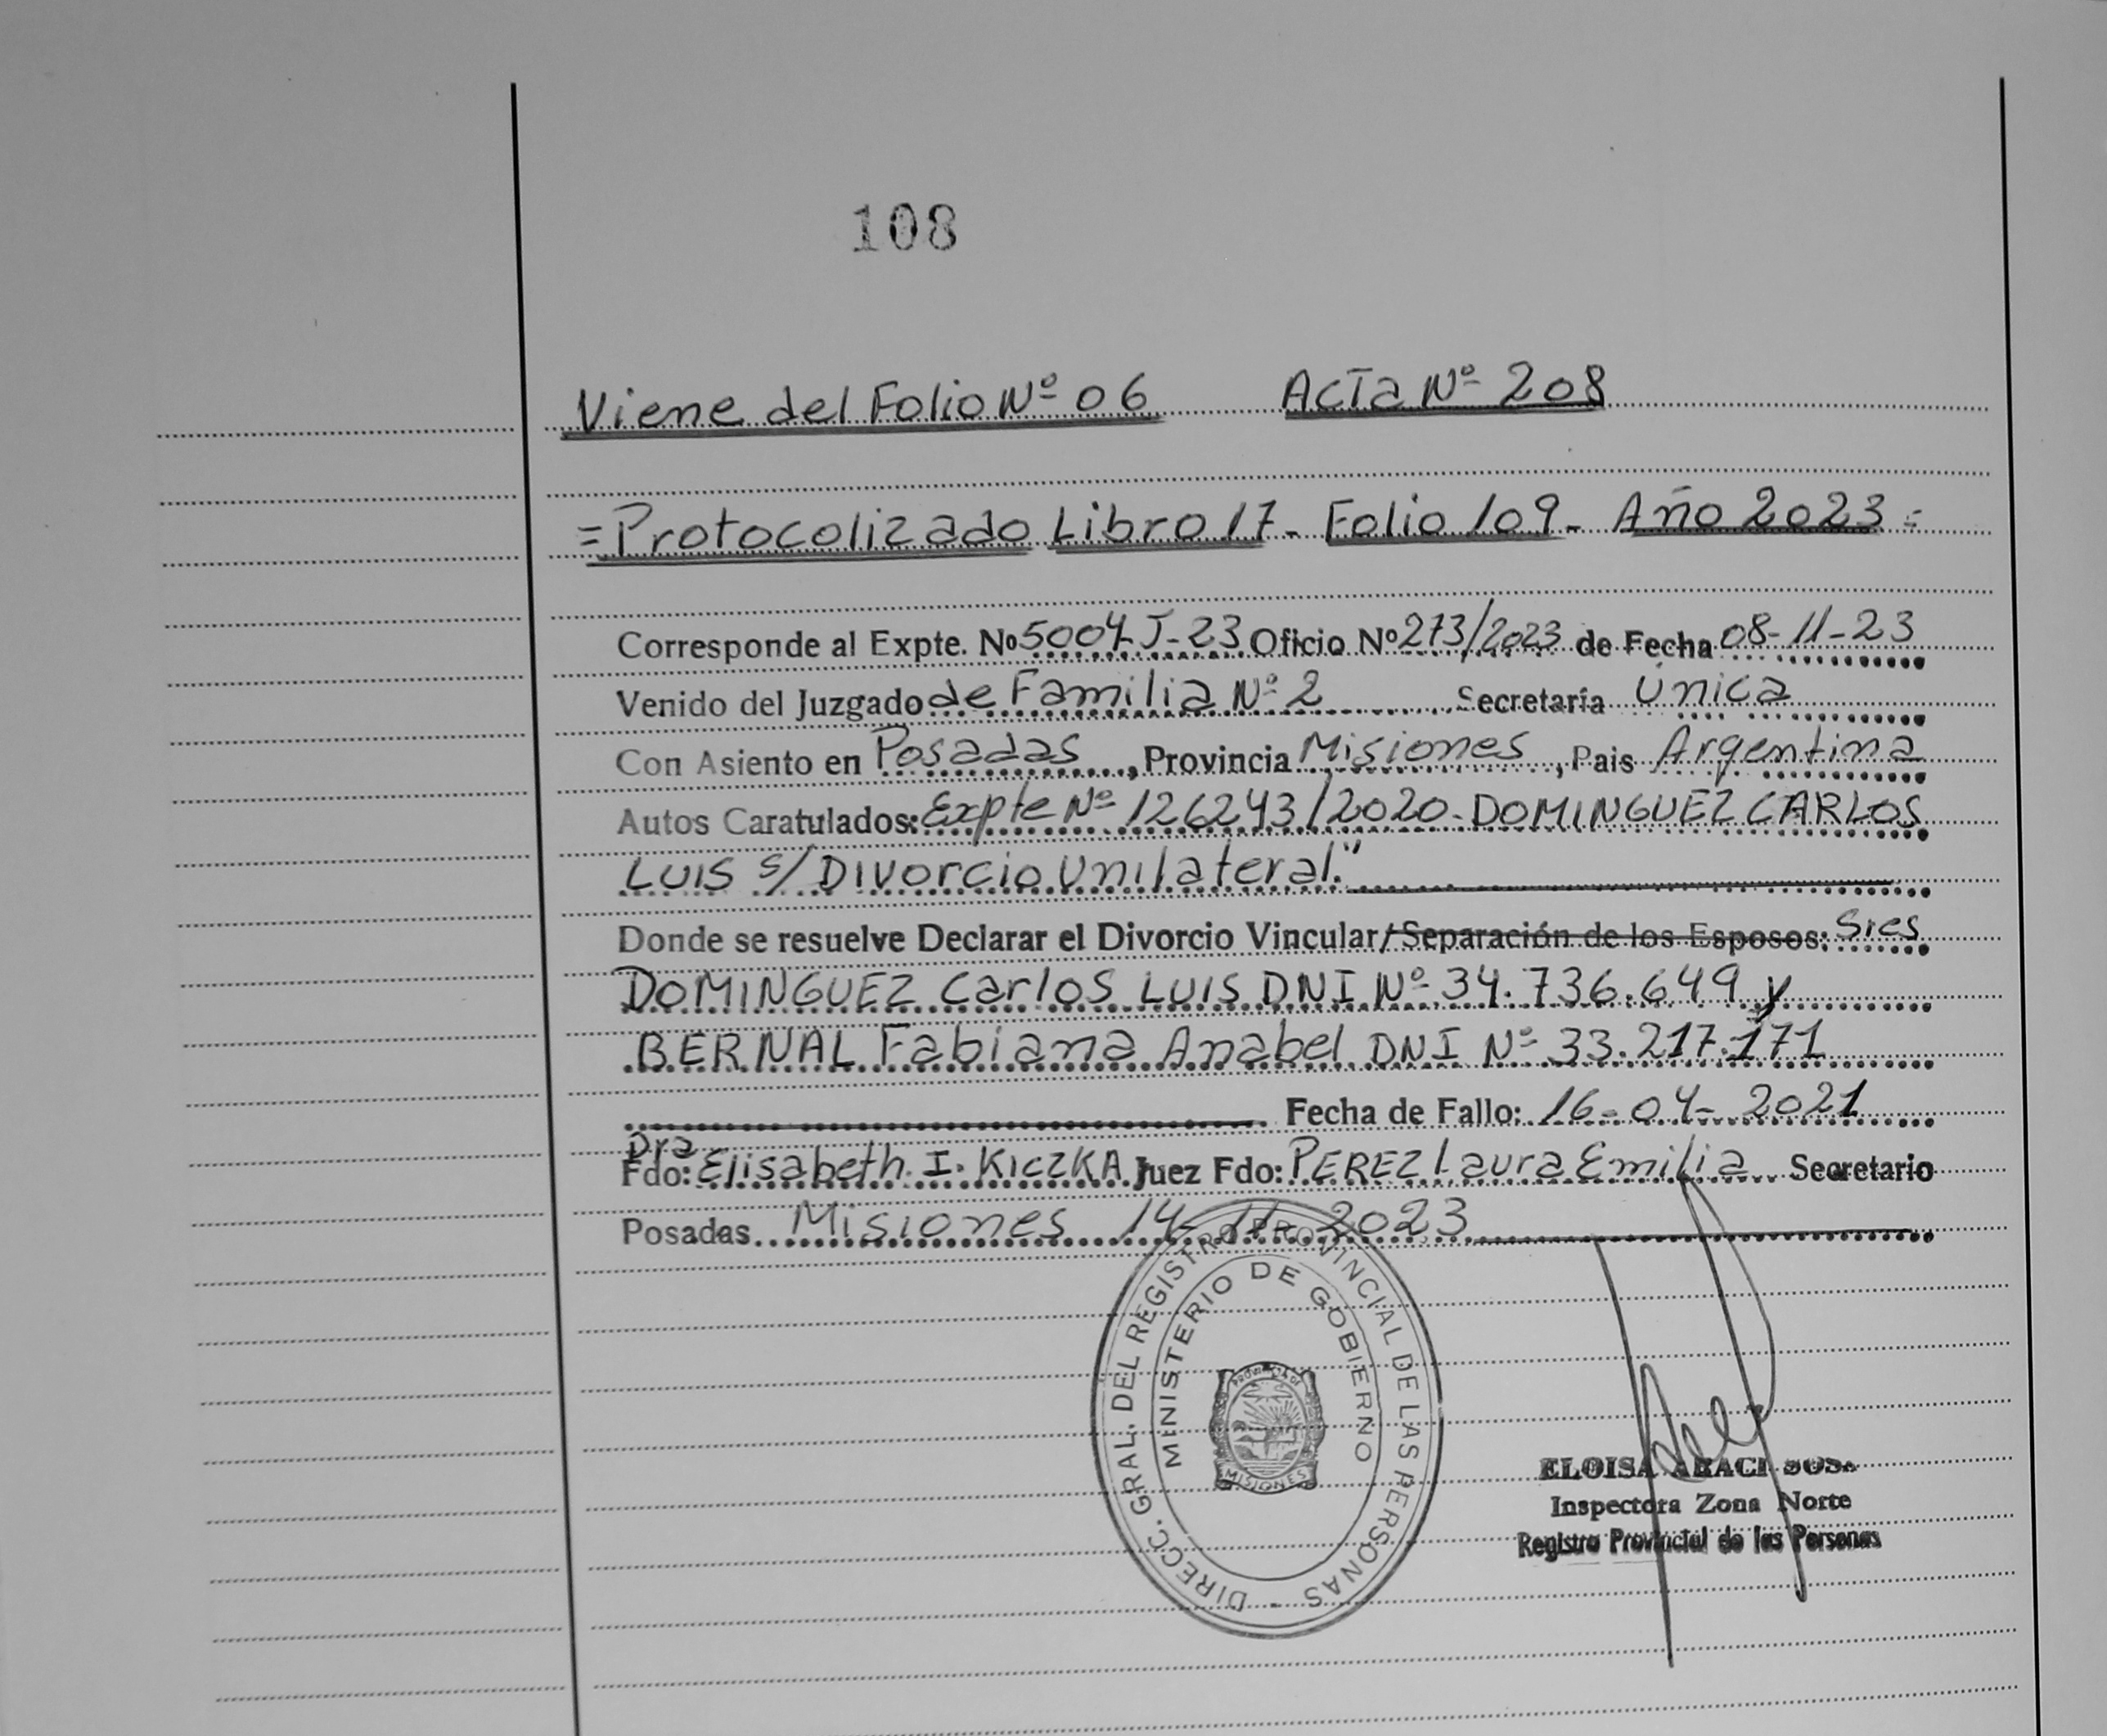 108
Viene del Folio Nº 06 Acta Nº 208
=Protocolizado Libro 17- Folio 109- Año 2023=
Corresponde al Expte. Nº 5004-J-23 Oficio Nº 273/2023 de Fecha 08-11-23
Venido del Juzgado de Familia Nº 2 Secretaría Única
Con Asiento en Posadas, Provincia Misiones, Pais Argentina
Autos Caratulados: Expte Nº 126243/2020-DOMINGUEZ CARLOS
LUIS s/ Divorcio Unilateral."
Donde se resuelve Declarar el Divorcio Vincular/Separación de los Esposos: Sres
DOMINGUEZ Carlos LUIS DNI Nº 34.736.649 y
BERNAL Fabiana Anabel DNI Nº 33.217.171
Fecha de Fallo: 16-04-2021
Dra
Fdo: Elisabeth I. KICZKA Juez Fdo: PEREZ Laura Emilia Secretario
Posadas Misiones 14-11-2023
DIRECC. GRAL. DEL REGISTRO PROVINCIAL DE LAS PERSONAS -
MINISTERIO DE GOBIERNO
MISIONES
ELOISA ARACI SOSA
Inspectora Zona Norte
Registro Provincial de las Personas